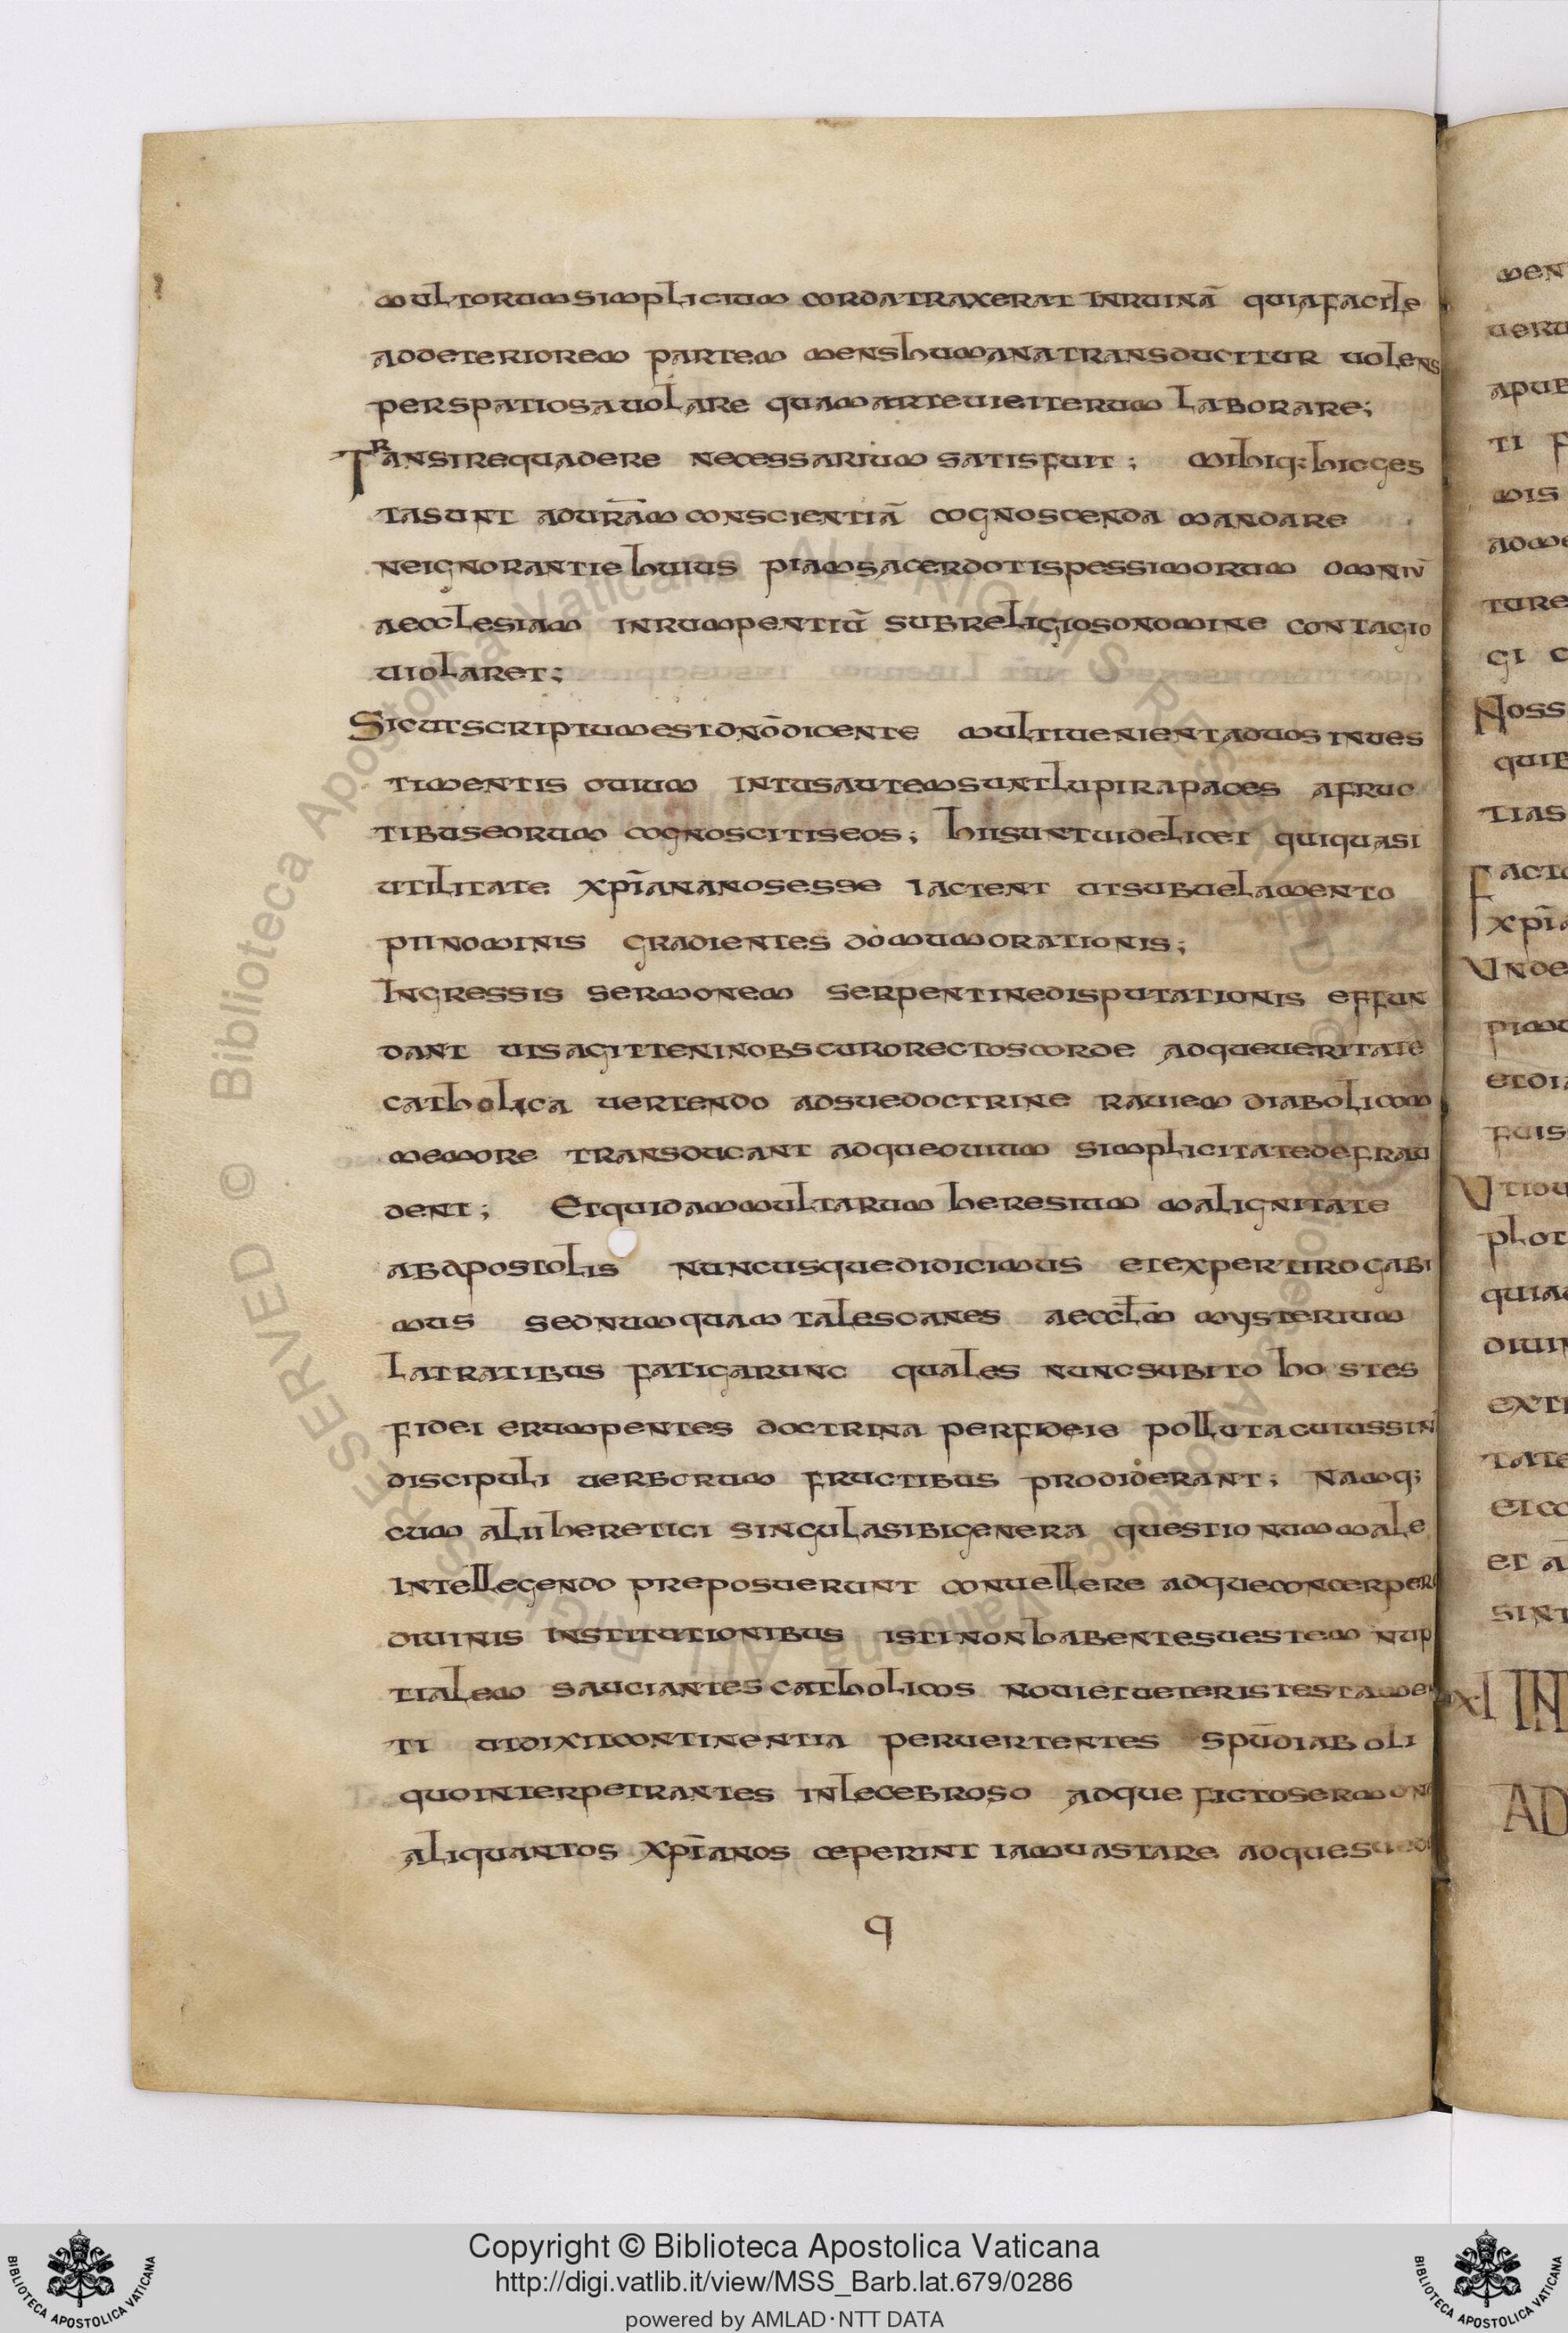 multorumsimplicium cordatraxerat inruinā quiafacile
addeteriorem partem menshumanatransducitur uolens
perspatiosauolare quamarteuieiterum laborare;
Transirequadere necessarium satisfuit; mihiq:hicges
tasunt aduram̄ conscientiā cognoscenda mandare
neignorantie huius piamsacerdotispessimorum omniū
aecclesiam inrumpentiū subreligiosonomine contagio
uiolaret;
Sicutscriptumestdnōdicente multiuenientaduosinues
timentis ouium intusautemsuntlupirapaces afruc
tibuseorum cognoscitiseos; hiisuntuidelicet quiquasi
utilitate xpīananosesse iactent utsubuelamento
piinominis gradientes domumorationis;
Ingressis sermonem serpentinedisputationis effun
dant utsagitteninobscurorectoscorde adqueueritate
catholica uertendo adsuedoctrine rauiem diabolicom
memore transducant adqueouium simplicitatedefrau
dent; Etquidammultarum heresium malignitate
abapostolis nuncusquedidicimus etexpertirogabi
mus sednumquam talescanes aeccłm̄ mysterium
latratibus fatigarunc quales nuncsubito hostes
fidei erumpentes doctrina perfideie pollutacuiussin
discipuli uerborum fructibus prodiderant; Namq;
cum aliiheretici singulasibigenera questionummale
intellegendo preposuerunt conuellere adqueconcerper
diuinis institutionibus istinonhabentesuestem nup
tialem sauciantescatholicos nouieiueteristestame
ti utdixitcontinentia peruertentes spūdiaboli
quointerpetrantes inlecebroso adque fictosermon
aliquantos xpīanos ceperint iamuastare adquesued
q
Copyright © Biblioteca Apostolica Vaticana
http://digi.vatlib.it/view/MSS_Barb.lat.679/0286
powered by AMLAD·NTT DATA